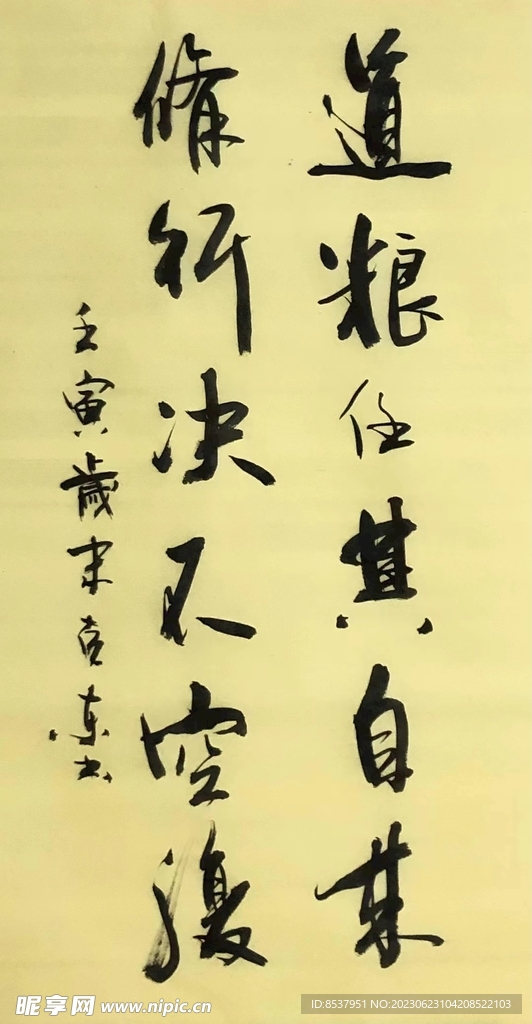 道粮任其自来
修行决不空腹
壬寅歲宋东书
昵享网 www.nipic.cn
ID:8537951 NO:20230623104208522103